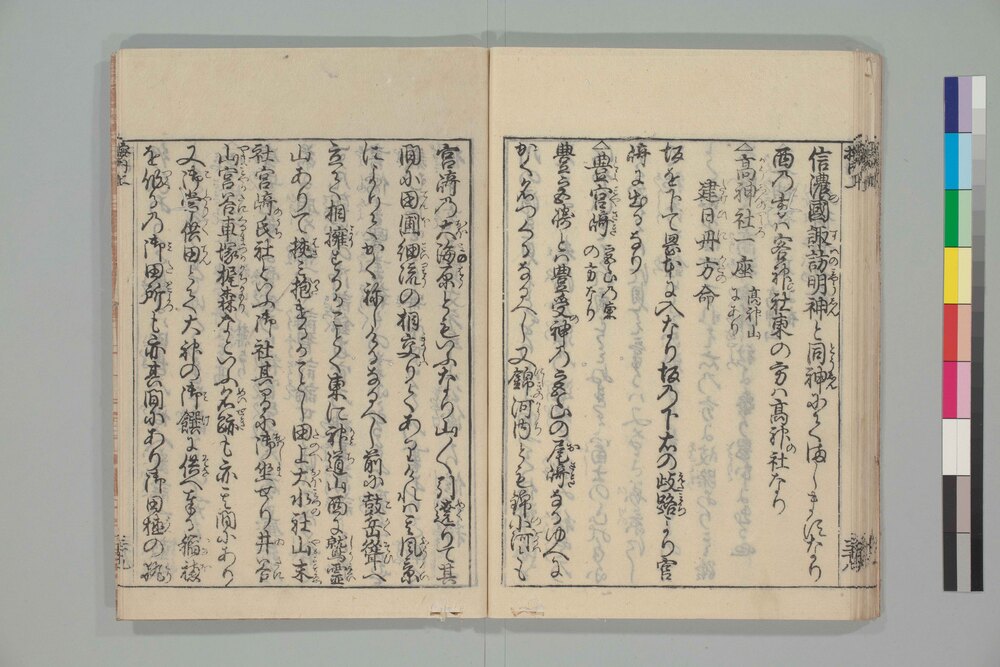 信濃國諏訪明神と同神にてましますなり
西の方は客神社東の方は高神社なり
△高神社一座 高神山にあり
建日丹方命
坂を下て田畑に入なり坂の下右の岐路より宮
﨑に出るなり
△豊宮﨑 高山の東の方なり
豊宮﨑とは豊受神の宮山の尾﨑なるゆへに
かく名つくるなるへし又錦河内とも錦小河とも
宮﨑乃大海原ともいふなり山々引遶りて其
間に田圃細流の相交りてありけれは其風景
によりてかく称しけるなるへし前に鼓岳聳へ
立て相擁するかことく東に神道山西に鷲霊
山ありて挟み抱きるかことし田上大水社山末
社宮﨑氏社といふ御社其間に御坐せり井谷
山宮谷車塚梶森なといふ名跡も亦其間にあり
又御常供田とて大神の御饌に供へ奉る稲穂
を作るの御田所も亦其間にあり御田植の